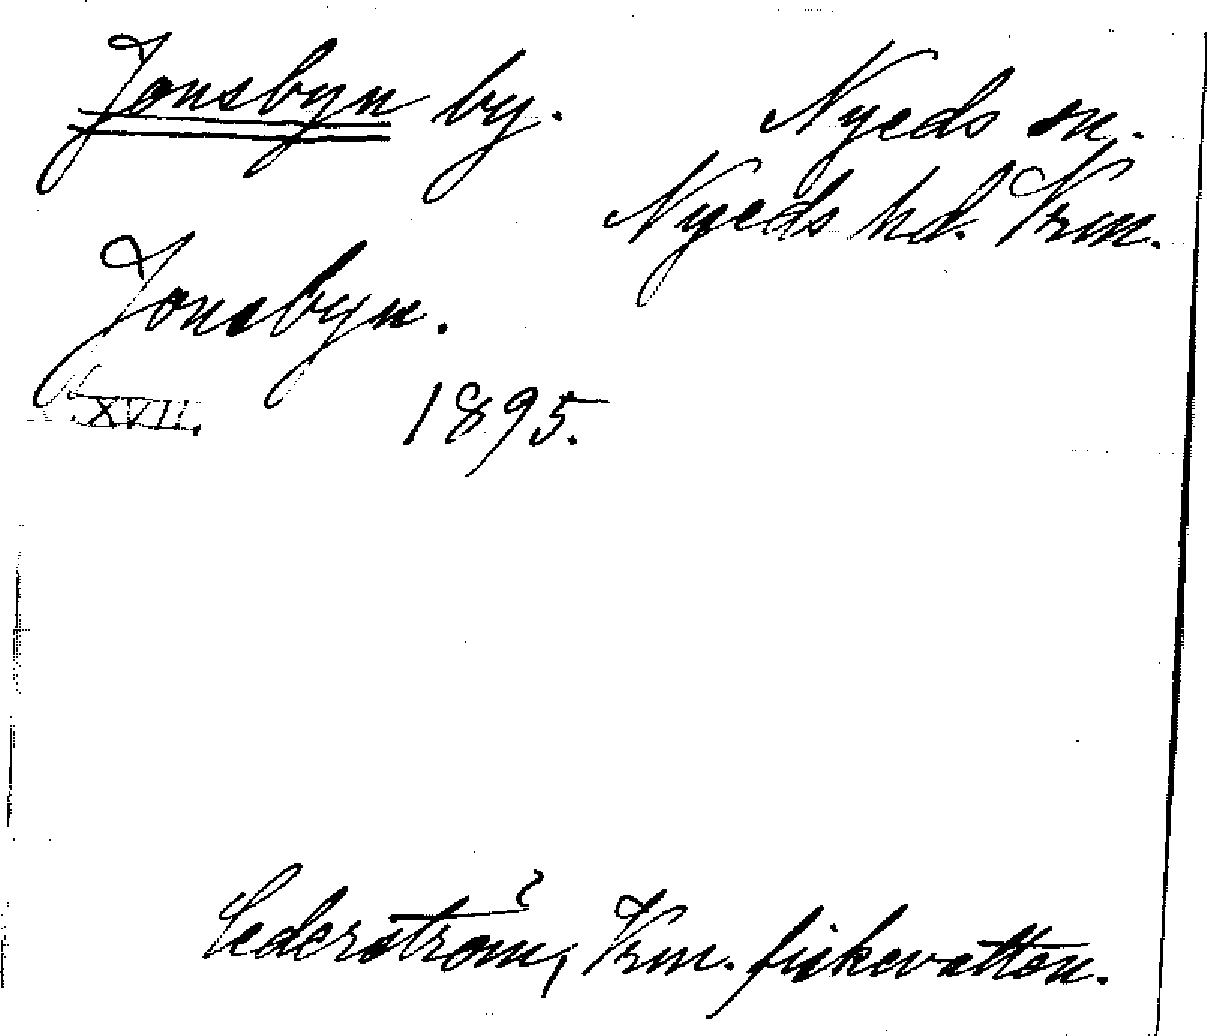 Jonsbyn by. Nyeds sn.
Nyeds hd. Vrm.
Jonsbyn.
XVII. 1895.
Cederström, Vrm. fiskevatten.